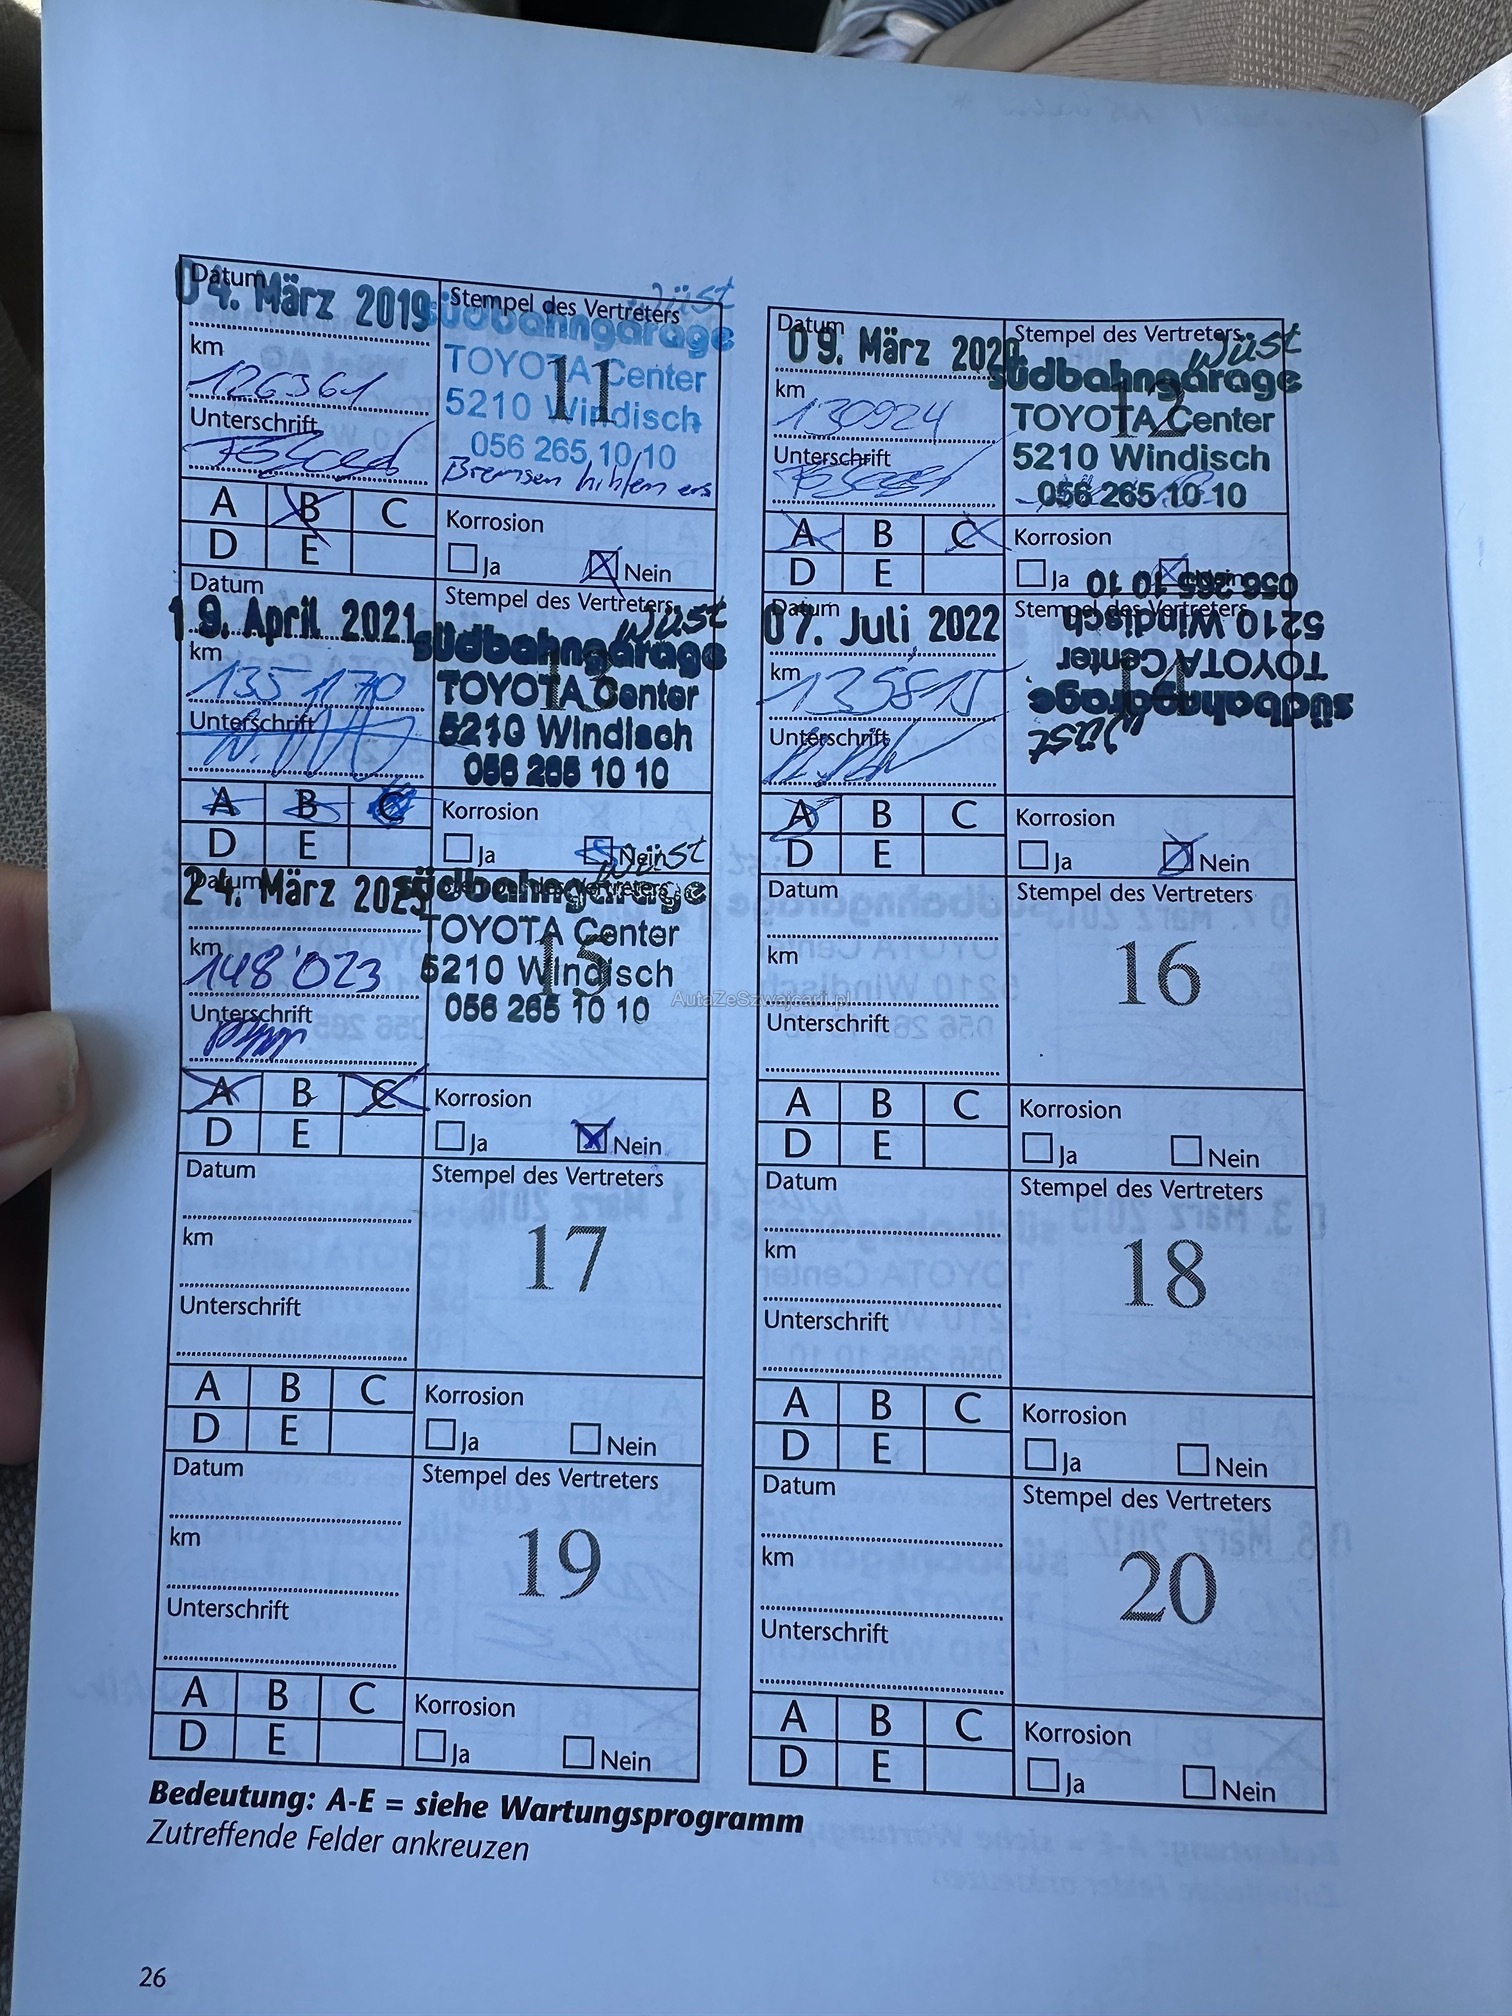 Datum
04. März 2019
km
126361
Unterschrift
Stempel des Vertreters
Wüst
südbahngarage
TOYOTA Center
11
5210 Windisch
056 265 10 10
Bremsen hinten
A B C
D E
Korrosion
Ja Nein
Datum
09. März 2020
km
130924
Unterschrift
Stempel des Vertreters
Wüst
südbahngarage
TOYOTA Center
12
5210 Windisch
056 265 10 10
A B C
D E
Korrosion
Ja Nein
Datum
19. April 2021
km
135170
Unterschrift
Stempel des Vertreters
Wüst
südbahngarage
TOYOTA Center
13
5210 Windisch
056 265 10 10
A B C
D E
Korrosion
Ja Nein
Datum
07. Juli 2022
km
135815
Unterschrift
Stempel des Vertreters
Wüst
südbahngarage
TOYOTA Center
14
5210 Windisch
056 265 10 10
A B C
D E
Korrosion
Ja Nein
Datum
24. März 2025
km
148'023
Unterschrift
Wüst
südbahngarage
TOYOTA Center
15
5210 Windisch
056 265 10 10
AutaZeSzwajcarii.pl
A B C
D E
Korrosion
Ja Nein
Datum
km
Unterschrift
Stempel des Vertreters
16
A B C
D E
Korrosion
Ja Nein
Datum
km
Unterschrift
Stempel des Vertreters
17
A B C
D E
Korrosion
Ja Nein
Datum
km
Unterschrift
Stempel des Vertreters
18
A B C
D E
Korrosion
Ja Nein
Datum
km
Unterschrift
Stempel des Vertreters
19
A B C
D E
Korrosion
Ja Nein
Datum
km
Unterschrift
Stempel des Vertreters
20
A B C
D E
Korrosion
Ja Nein
Bedeutung: A-E = siehe Wartungsprogramm
Zutreffende Felder ankreuzen
26